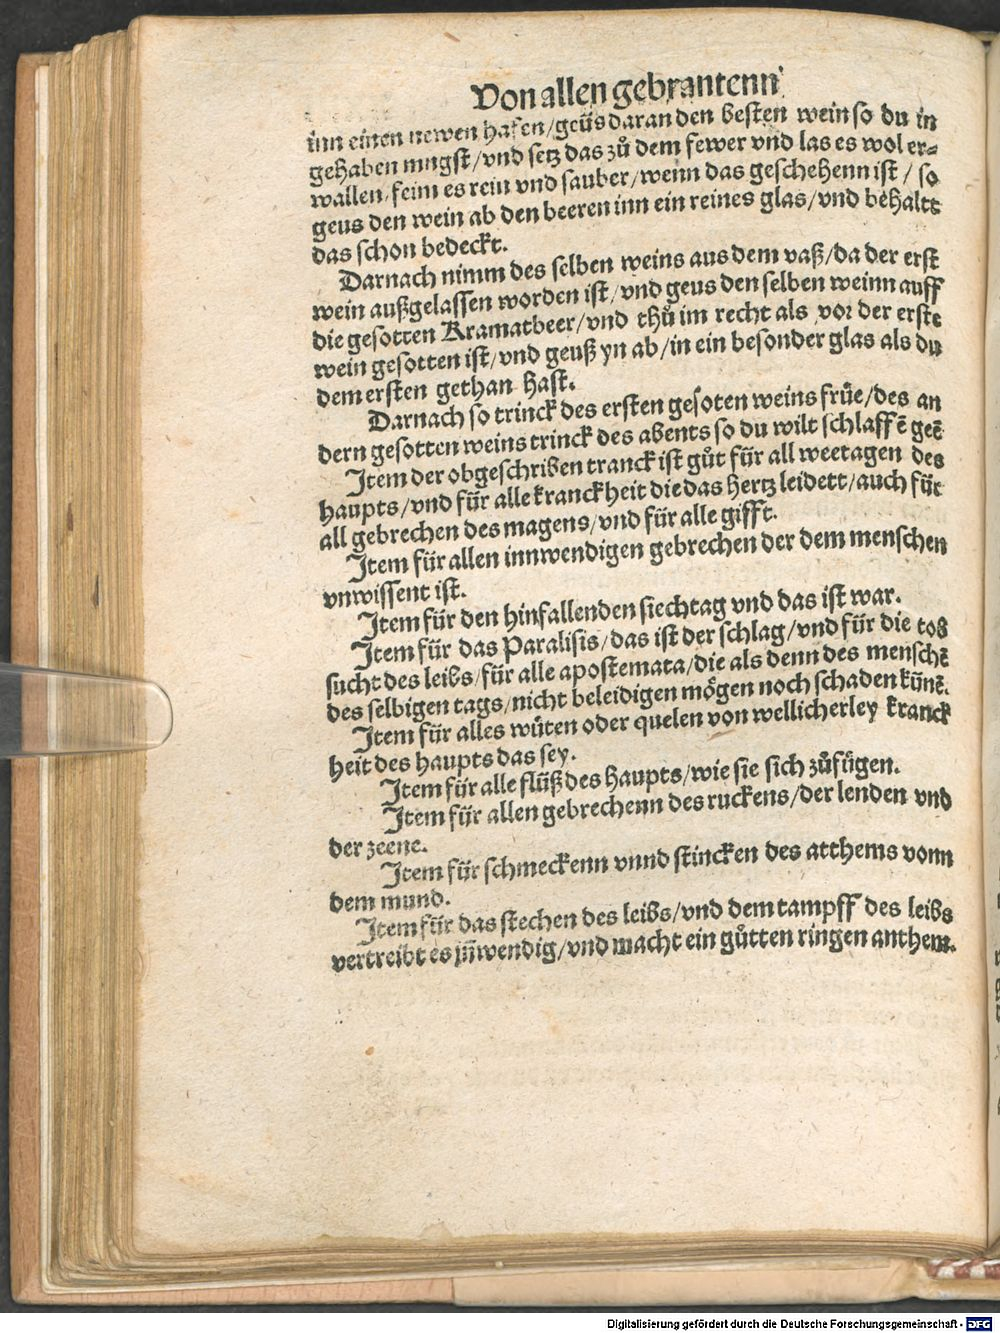 Von allen gebrantenn
inn einen newen hafen/geüs daran den besten wein so du in
gehaben mugst/vnd setz das zů dem fewer vnd las es wol er=
wallen/feim es rein vnd sauber/wenn das geschehenn ist/ so
geus den wein ab den beeren inn ein reines glas/vnd behaltt
das schon bedeckt.
Darnach nimm des selben weins aus dem vaß/da der erst
wein außgelassen worden ist/vnd geus den selben weinn auff
die gesotten Kramatbeer/vnd thů im recht als vor der erste
wein gesotten ist/vnd geuß yn ab/in ein besonder glas als du
dem ersten gethan hast.
Darnach so trinck des ersten gesoten weins früe/des an
dern gesotten weins trinck des abents so du wilt schlaffē geē
Item der obgeschriben tranck ist gůt für all weetagen des
haupts/vnd für alle kranckheit die das hertz leidett/auch für
all gebrechen des magens/vnd für alle gifft.
Item für allen innwendigen gebrechen der dem menschen
vnwissent ist.
Item für den hinfallenden siechtag vnd das ist war.
Item für das Paralisis/das ist der schlag/vnd für die tob
sucht des leibs/für alle apostemata/die als denn des menschē
des selbigen tags/nicht beleidigen mögen noch schaden künē.
Item für alles wüten oder quelen von wellicherley kranck
heit des haupts das sey.
Item für alle flüß des haupts/wie sie sich zůfügen.
Item für allen gebrechenn des ruckens/der lenden vnd
der zeene.
Item für schmeckenn vnnd stincken des atthems vonn
dem mund.
Item für das stechen des leibs/vnd dem tampff des leibs
vertreibt es iñwendig/vnd macht ein gůtten ringen anthem.
Digitalisierung gefördert durch die Deutsche Forschungsgemeinschaft - DFG